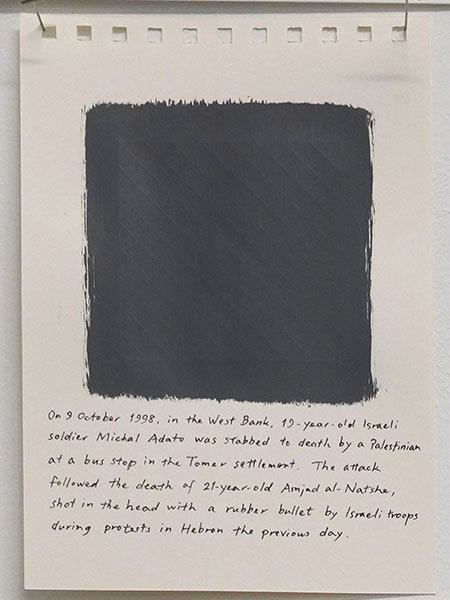 On 9 October 1998, in the West Bank, 19-year-old Israeli
soldier Michal Adato was stabbed to death by a Palestinian
at a bus stop in the Tomer settlement. The attack
followed the death of 21-year-old Amjad al-Natshe,
shot in the head with a rubber bullet by Israeli troops
during protests in Hebron the previous day.